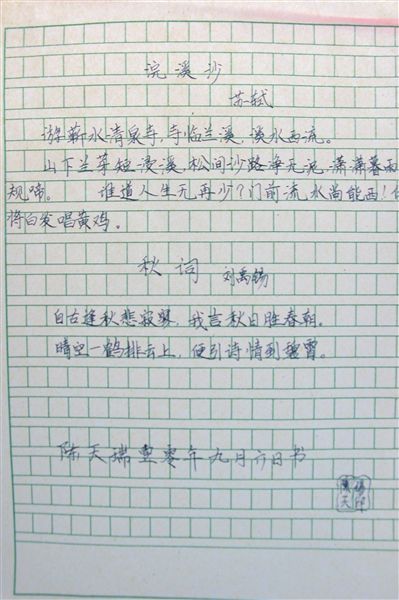 浣溪沙
苏轼
游蕲水清泉寺,寺临兰溪,溪水西流。
山下兰芽短浸溪,松间沙路净无泥,潇潇暮雨
规啼。 谁道人生无再少?门前流水尚能西!
将白发唱黄鸡。
秋词 刘禹锡
自古逢秋悲寂寥,我言秋日胜春朝。
晴空一鹤排云上,便引诗情到碧霄。
陈天瑞壹零年九月六日书